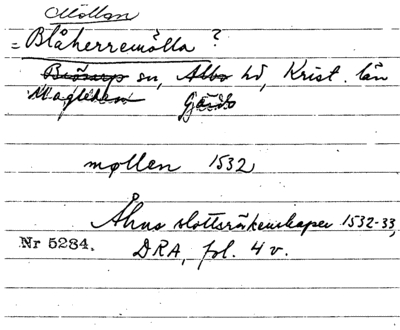 Möllan
= Blåherremölla ?
Brösarp sn, Albo hd, Krist. län
Maglehem Gärds
møllen 1532
Åhus slottsräkenskaper 1532-33,
Nr 5284. DRA, fol. 4 v.